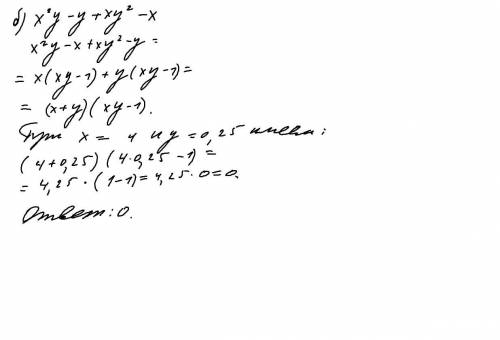 б) x²y - y + xy² - x
x²y - x + xy² - y =
= x(xy - 1) + y(xy - 1) =
= (x + y)(xy - 1).
При x = 4 и y = 0,25 имеем:
(4 + 0,25)(4·0,25 - 1) =
= 4,25 · (1 - 1) = 4,25 · 0 = 0.
Ответ: 0.